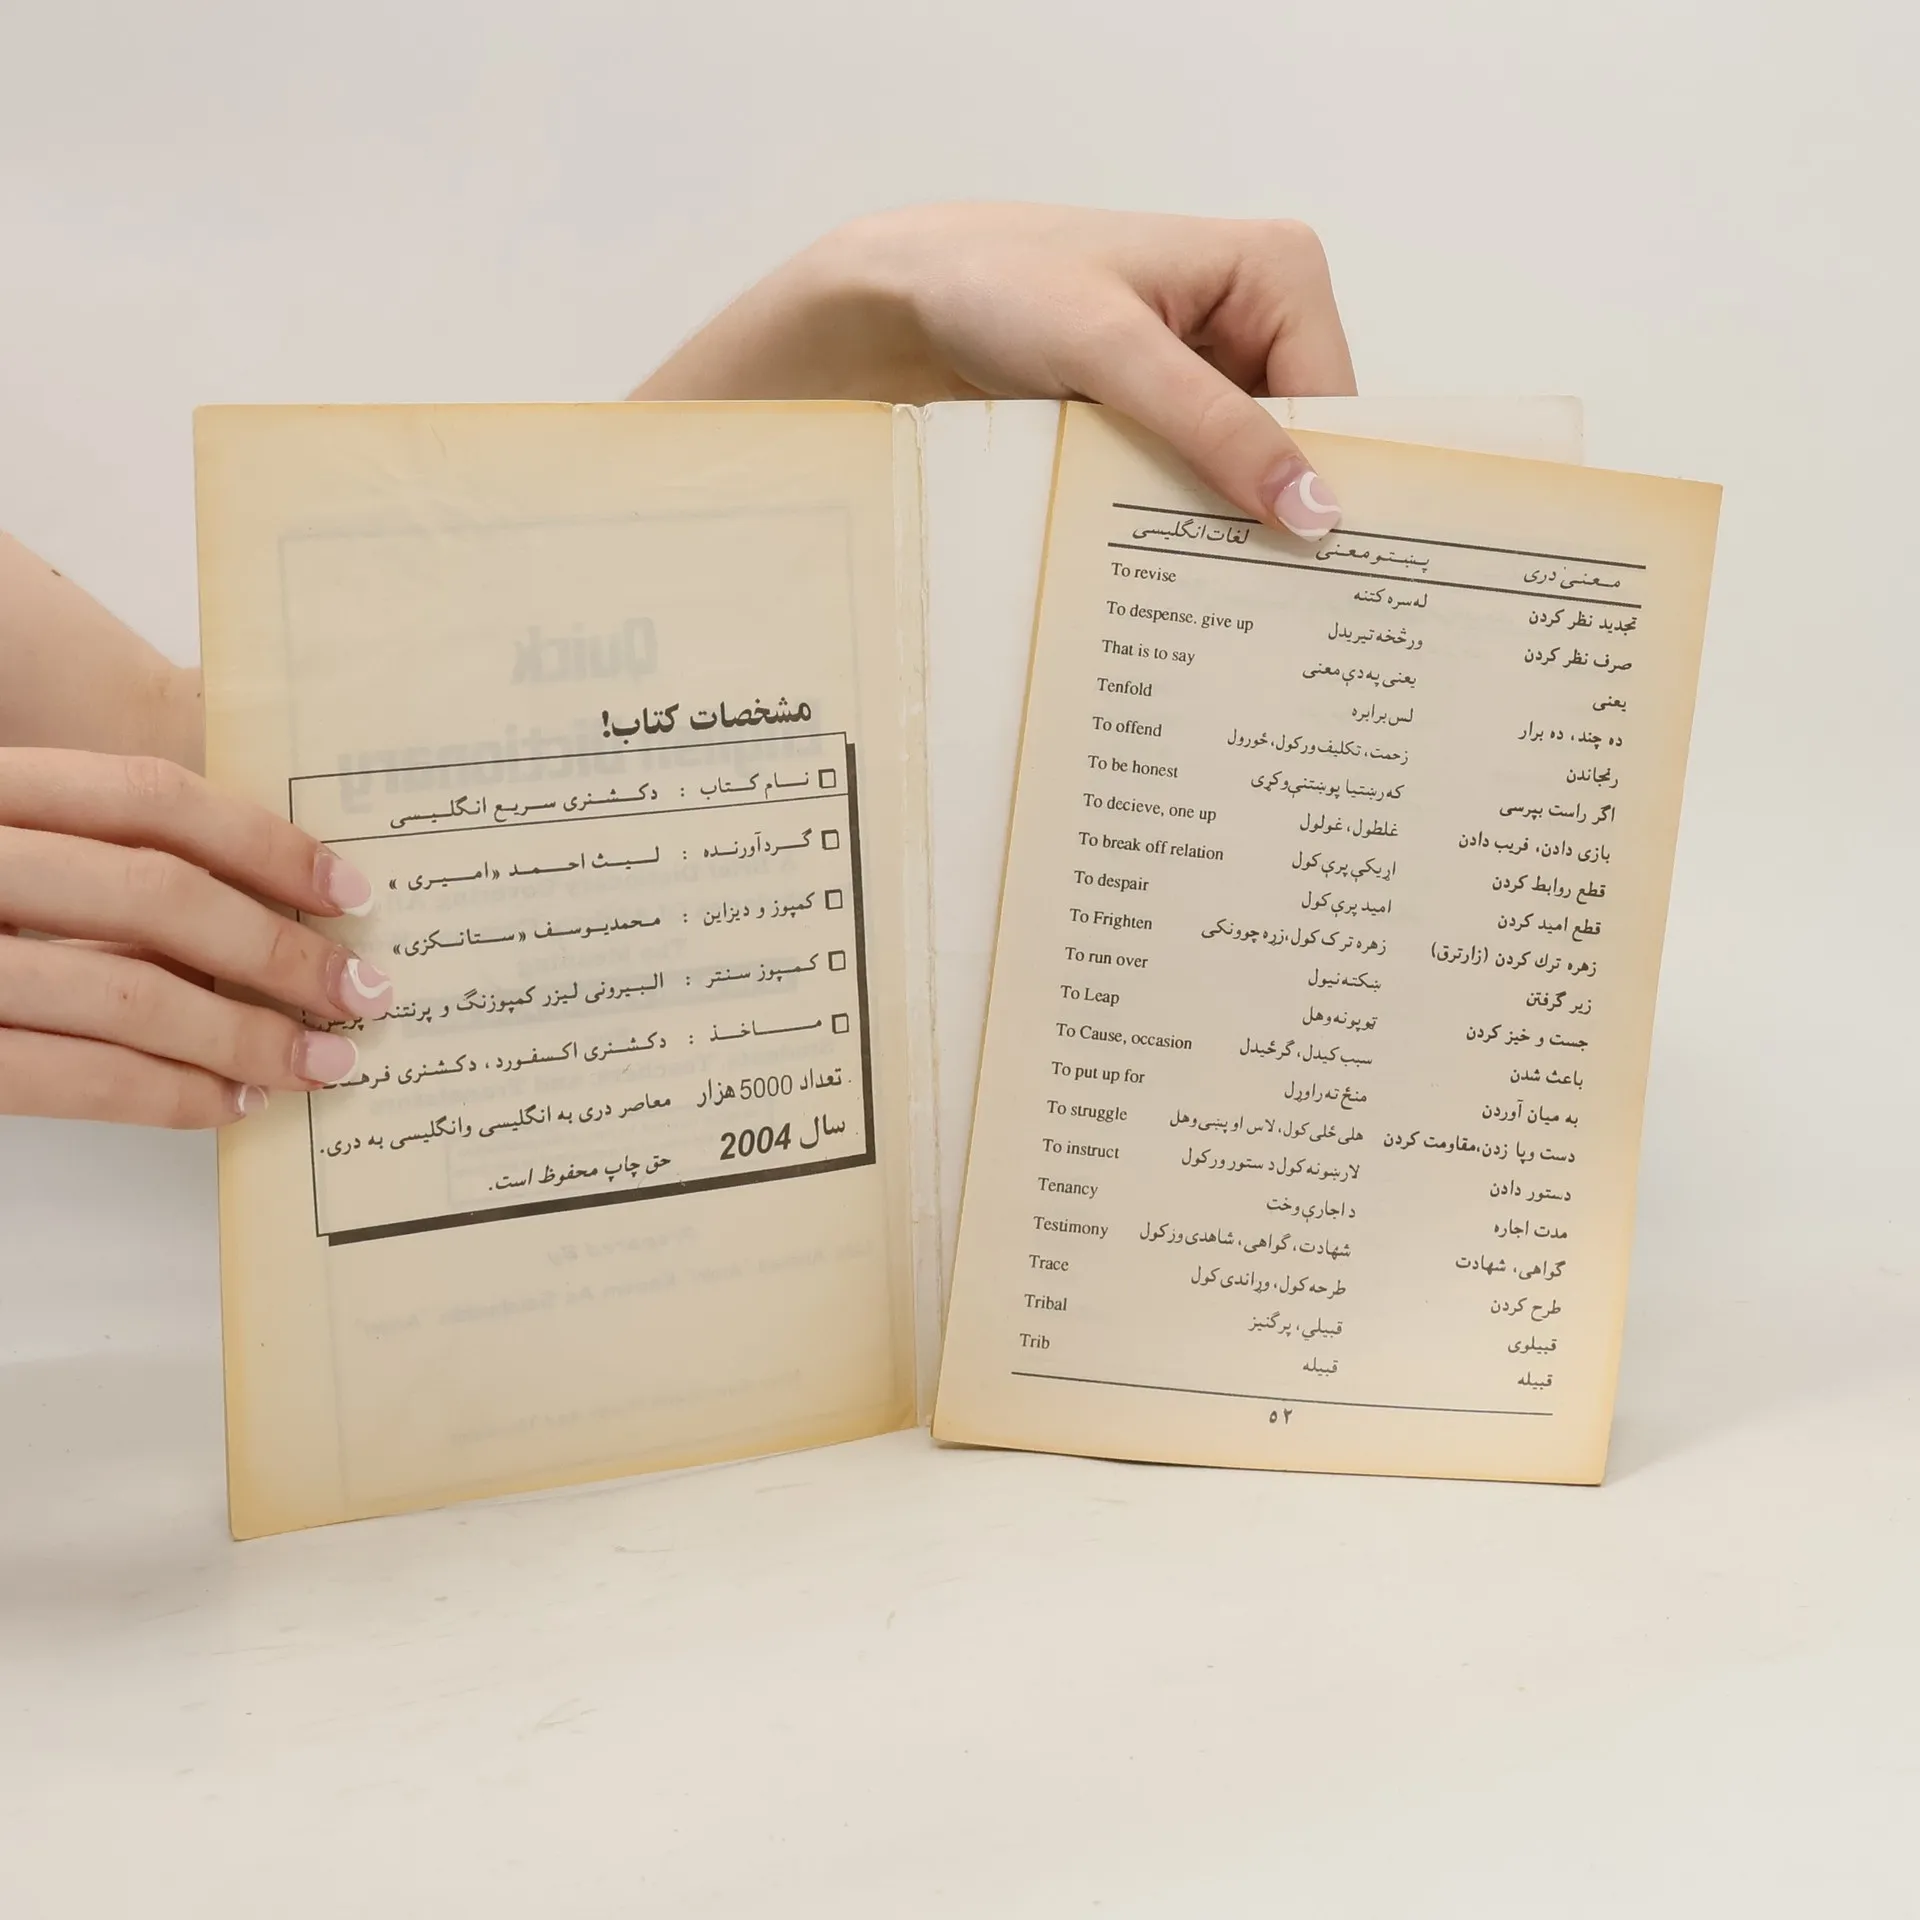 مشخصات کتاب!
نام کتاب : دکشنری سریع انگلیسی
گردآورنده : لیث احمد «امیری»
کمپوز و دیزاین : محمدیوسف «ستانکزی»
کمپوز سنتر : البیرونی لیزر کمپوزنگ و پرنتنگ پریس
ماخذ : دکشنری اکسفورد، دکشنری فرهنگ
تعداد 5000 هزار معاصر دری به انگلیسی وانگلیسی به دری.
سال 2004 حق چاپ محفوظ است.
Quick
English Dictionary
لغات انگلیسی پښتو معنی معنی دری
To revise له سره کتنه تجدید نظر کردن
To despense. give up ورڅخه تیریدل صرف نظر کردن
That is to say یعنی په دې معنی یعنی
Tenfold لس برابره ده چند، ده برار
To offend زحمت، تکلیف ورکول، ځورول رنجاندن
To be honest که رښتیا پوښتنې وکړی اگر راست بپرسی
To decieve, one up غلطول، غولول بازی دادن، فریب دادن
To break off relation اړیکې پرې کول قطع روابط کردن
To despair امید پرې کول قطع امید کردن
To Frighten زهره ترک کول، زړه چوونکی زهره ترك کردن (زارترق)
To run over ښکته نیول زیر گرفتن
To Leap ټوپونه وهل جست و خیز کردن
To Cause, occasion سبب کیدل، گرځیدل باعث شدن
To put up for منځ ته راوړل به میان آوردن
To struggle هلی ځلی کول، لاس او پښی وهل دست وپا زدن،مقاومت کردن
To instruct لارښونه کول د ستور ورکول دستور دادن
Tenancy د اجارې وخت مدت اجاره
Testimony شهادت، گواهی، شاهدی ورکول گواهی، شهادت
Trace طرحه کول، وړاندی کول طرح کردن
Tribal قبیلي، پرگنیز قبیلوی
Trib قبیله قبیله
۵۲